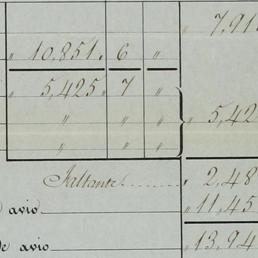 7,91
" 10,851. 6 "
" 5,425. 7 "
" " " " 5,42
" " "
Faltante 2,48
avio " 11,45
de avio " 13,94